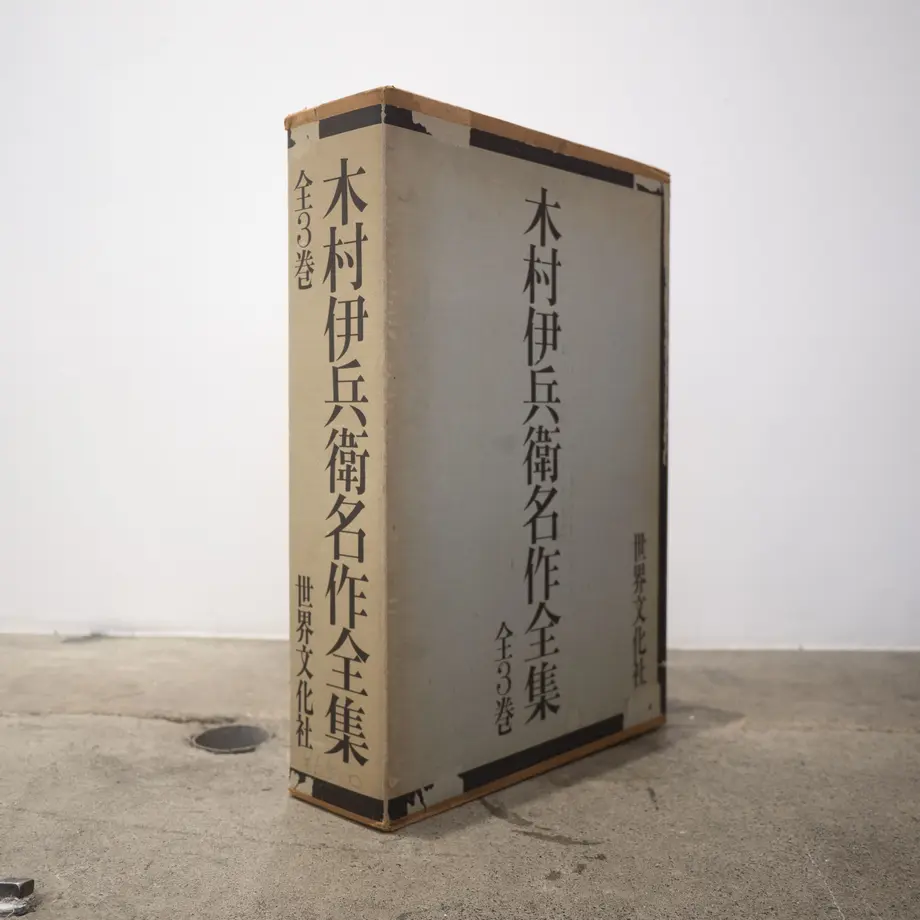 木村伊兵衛名作全集
全3巻
世界文化社
木村伊兵衛名作全集
全3巻
世界文化社